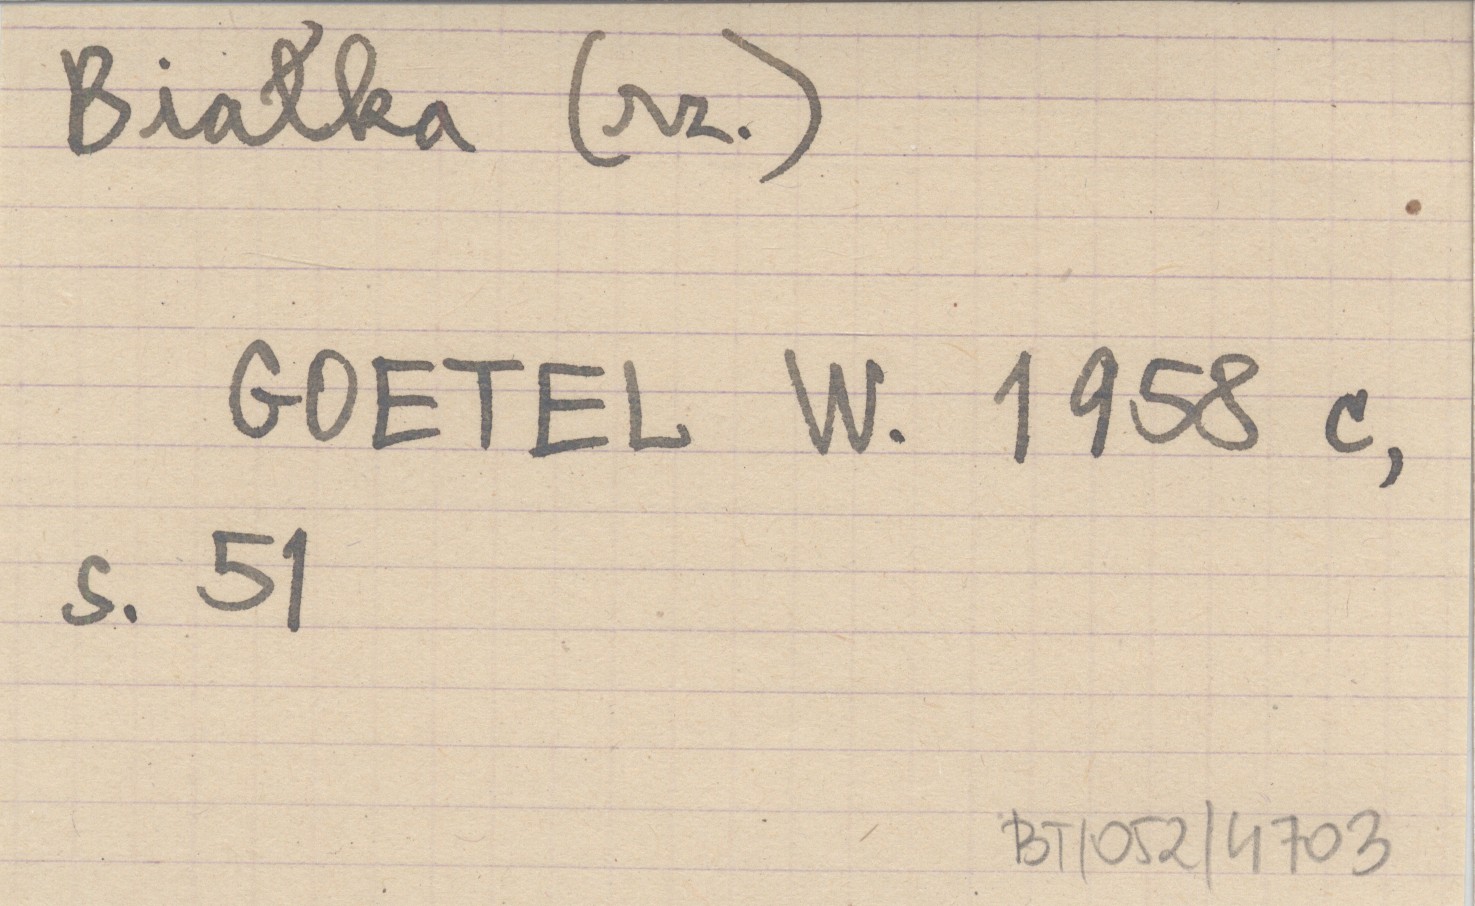 Białka (rz.)
GOETEL W. 1958 c,
s. 51
BT/052/4703